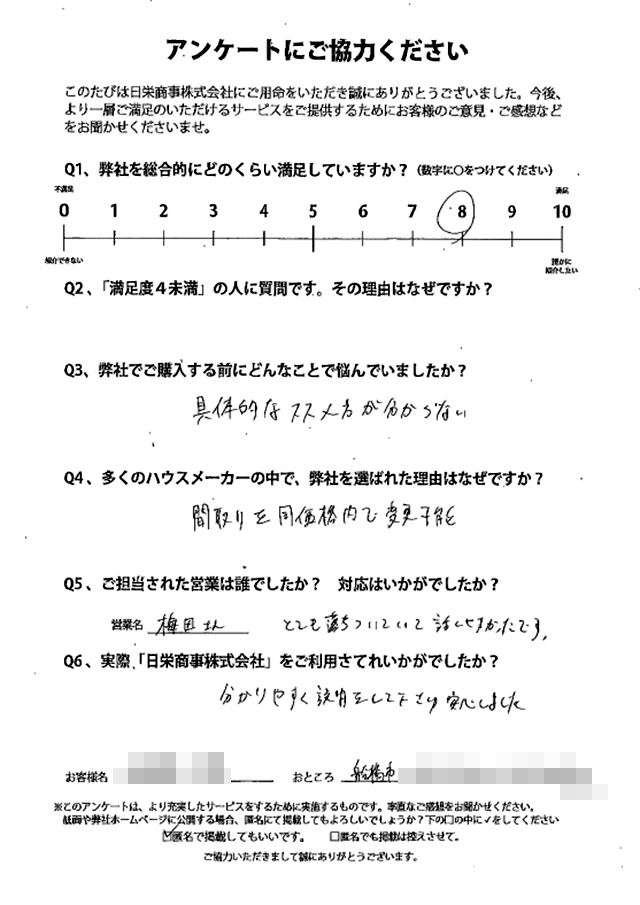 アンケートにご協力ください
このたびは日栄商事株式会社にご用命をいただき誠にありがとうございました。今後、
より一層ご満足のいただけるサービスをご提供するためにお客様のご意見・ご感想など
をお聞かせくださいませ。
Q1、弊社を総合的にどのくらい満足していますか？（数字に○をつけてください）
不満足 満足
0 1 2 3 4 5 6 7 8 9 10
紹介できない 誰かに
紹介したい
Q2、「満足度４未満」の人に質問です。その理由はなぜですか？
Q3、弊社でご購入する前にどんなことで悩んでいましたか？
具体的なススメ方が分からない
Q4、多くのハウスメーカーの中で、弊社を選ばれた理由はなぜですか？
間取りを同価格内で変更可能
Q5、ご担当された営業は誰でしたか？ 対応はいかがでしたか？
営業名 梅田さん とても落ちついていて話しやすかったです。
Q6、実際、「日栄商事株式会社」をご利用されていかがでしたか？
分かりやすく説明をして下さり安心しました
お客様名 おところ 船橋市
※このアンケートは、より充実したサービスをするために実施するものです。率直なご感想をお聞かせください。
紙面や弊社ホームページに公開する場合、匿名にて掲載してもよろしいでしょうか？下の□の中に✓をしてください
☑匿名で掲載してもいいです。 □匿名でも掲載は控えさせて。
ご協力いただきまして誠にありがとうございます。